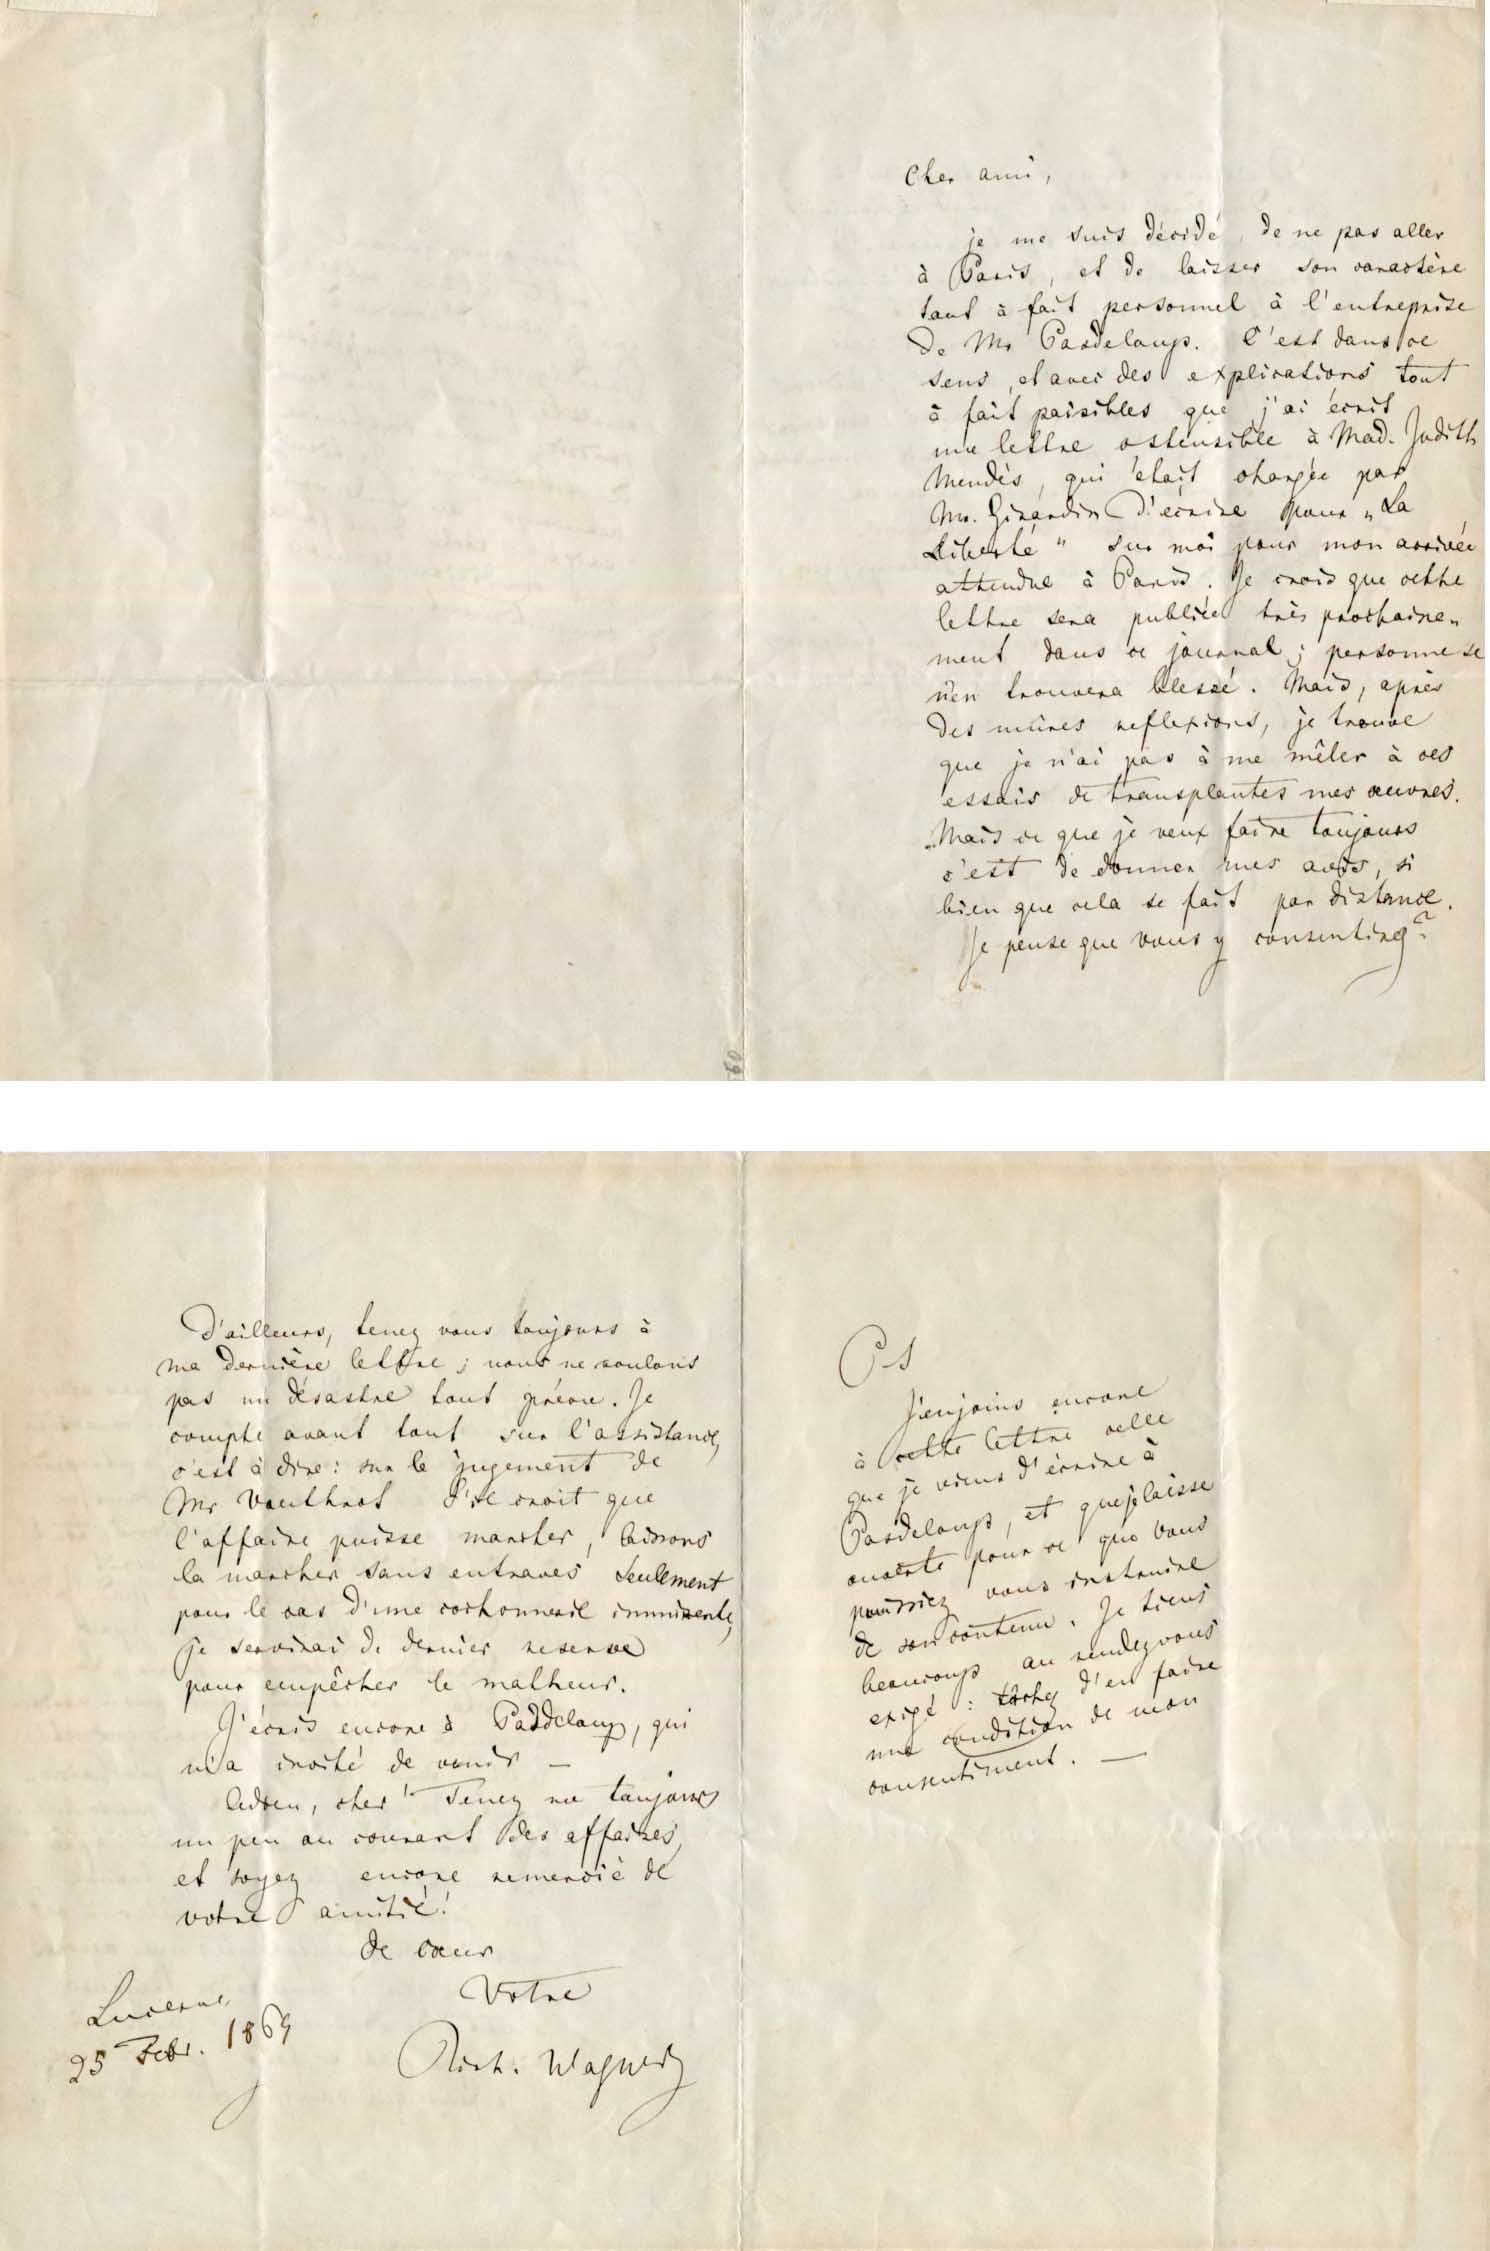 Cher ami,
je me suis décidé, de ne pas aller
à Paris, et de laisser son caractère
tout à fait personnel à l'entreprise
de Mr Pasdeloup. C'est dans ce
sens, et avec des explications tout
à fait paisibles que j'ai écrit
une lettre ostensible à Mad. Judith
Mendès, qui était chargée par
Mr. Girardin d'écrire pour „La
Liberté" sur moi pour mon arrivée
attendue à Paris. Je crois que cette
lettre sera publiée très prochaine„
ment dans ce journal; personne se
n'en trouvera blessé. Mais, après
des mûres reflexions, je trouve
que je n'ai pas à me mêler à ces
essais de transplanter mes œuvres.
Mais ce que je veux faire toujours
c'est de donner mes avis, si
bien que cela se fait par distance.
Je pense que vous y consentirez?
D'ailleurs, tenez vous toujours à
ma dernière lettre; nous ne voulons
pas un désastre tout prévu. Je
compte avant tout sur l'assistance,
c'est à dire: sur le jugement de
Mr Vauthrot S'il croit que
l'affaire puisse marcher, laissons
la marcher sans entraves Seulement
pour le cas d'une cochonnerie imminente,
je servirai de dernier reserve
pour empêcher le malheur.
J'écris encore à Pasdeloup, qui
m'a invité de venir —
Adieu, cher! Tenez me toujours
un peu au courant des affaires,
et soyez encore remercié de
votre amitié!
de cœur
Votre
Rich. Wagner
Lucerne,
25 Febr. 1869
PS
J'enjoins encore
à cette lettre celle
que je viens d'écrire à
Pasdeloup, et que je laisse
ouverte pour ce que vous
pourriez vous instruire
de son contenu. Je tiens
beaucoup au rendezvous
exigé: tâchez d'en faire
une condition de mon
consentiment. —